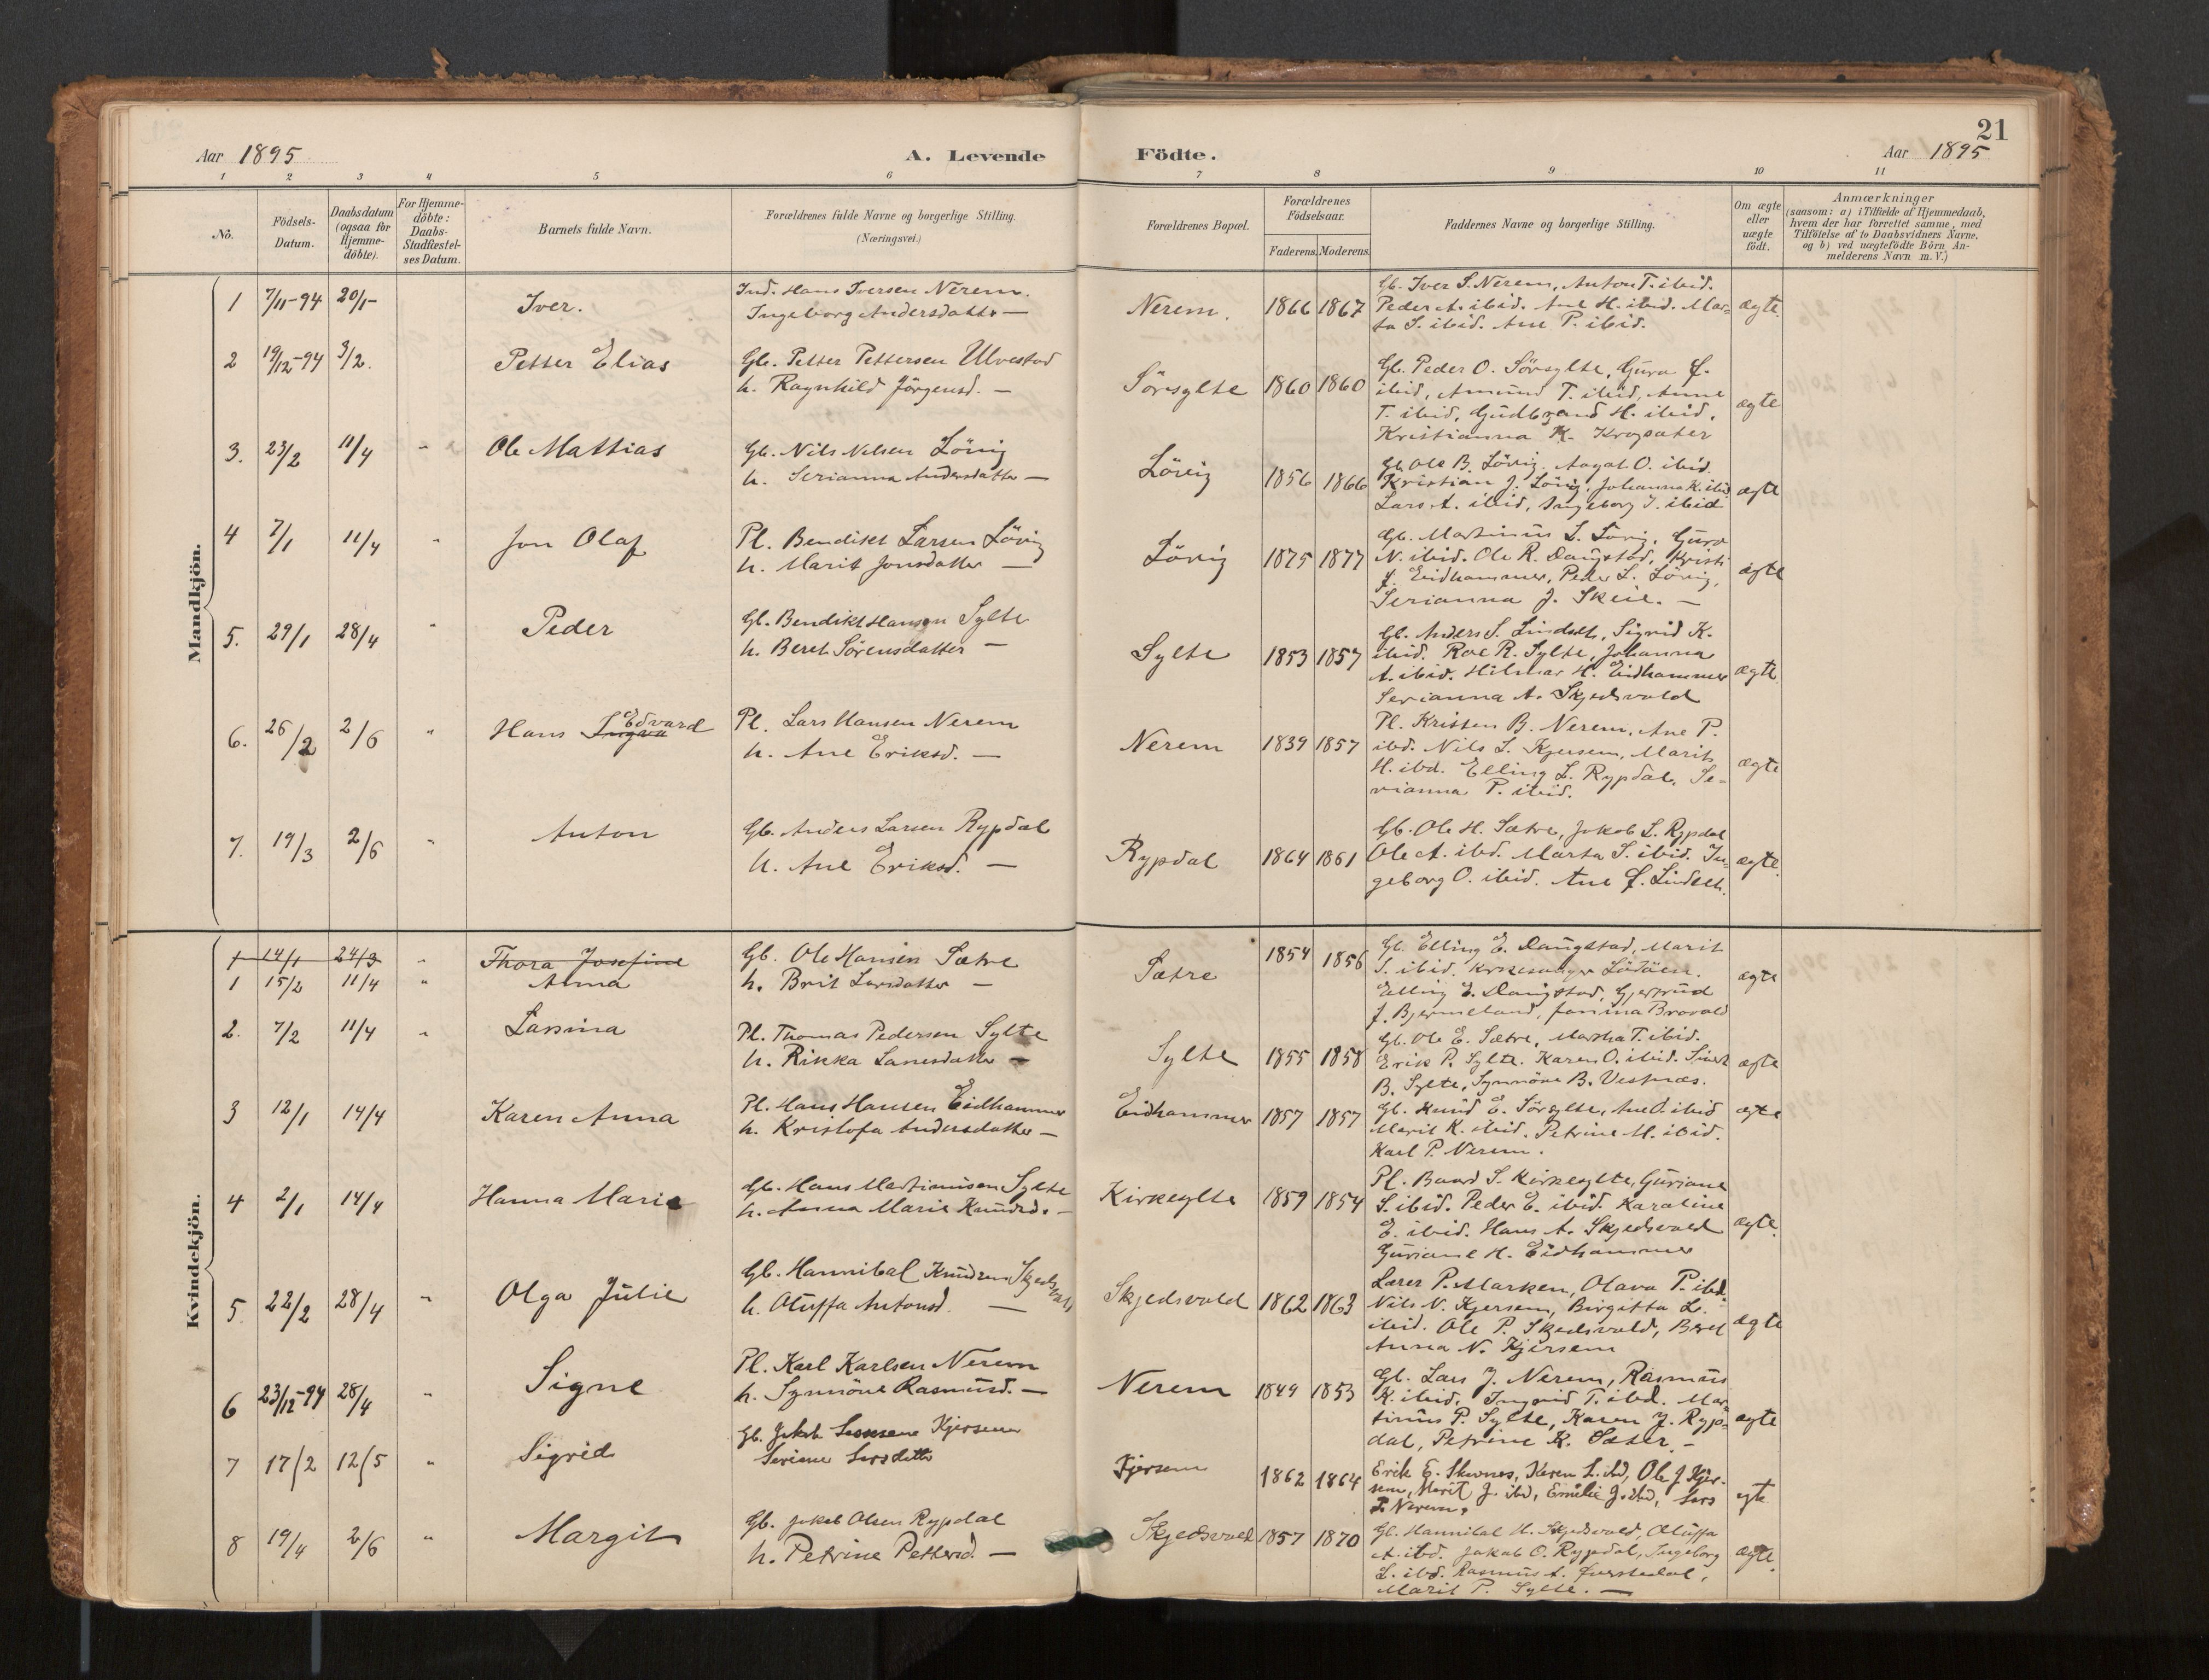 21
Aar 1895
A. Levende
Födte.
Aar 1895
1 2 3 4 5 6 7 8 9 10 11
No.
Födsels-Datum.
Daabsdatum (ogsaa for Hjemme-döbte).
For Hjemme-döbte: Daabs-Stadfæstel-ses Datum.
Barnets fulde Navn.
Forældrenes fulde Navne og borgerlige Stilling. (Næringsvei.)
Forældrenes Bopæl.
Forældrenes Födselsaar.
Faderens. Moderens.
Faddernes Navne og borgerlige Stilling.
Om ægte eller uægte födt.
Anmærkninger
(saasom: a) i Tilfælde af Hjemmedaab, hvem der har forrettet samme, med Tilföielse af to Daabsvidners Navne, og b) ved uægtefödte Börn An-melderens Navn m. V.)
Mandkjön.
1 7/11-94 20/1- Iver.
Ind. Hans Iversen Nerem.
Ingeborg Andersdatter —
Nerem. 1866 1867
Gb. Iver S. Nerem, Anton T. ibid.
Peder A. ibid. Ane H. ibid. Mar=
ta S. ibid. Ane P. ibid.
ægte.
2 19/12-94 3/2. Petter Elias
Gb. Petter Pettersen Ulvestad
h. Ragnhild Jörgensd. —
Sörsylte 1860 1860
Gb. Peder O. Sörsylte, Guro J.
ibid, Amund T. ibid, Anne
T. ibid, Gudbrand H. ibid,
Kristianna K.
ægte
3. 23/2 11/4 " Ole Mattias
Gb. Nils Nilsen Lövig
h. Serianna Andersdatter —
Lövig 1856 1866
Gb. Ole B. Lövig. O. ibid.
Kristian J. Lövig, Johanna K. ibid
Lars A. ibid, Ingeborg J. ibid
ægte
4 7/1 11/4 " Jon Olaf
Pl. Bendikt Larsen Lövig
h. Marit Jonsdatter —
Lövig 1875 1877
Gb. Martinus L. Lövig, Guro
N. ibid. Ole R. Daugstad, Kristi
J. Eidhammer, Peder L. Lövig,
Serianna J. Skeie. —
ægte
5. 29/1 28/4 " Peder
Gb. Bendikt Hansen Sylte
h. Beret Sörensdatter —
Sylte 1853 1857
Gb. Anders S. Lindset, Sigrid K.
ibid. Roe R. Sylte, Johanna
A. ibid. Hilmar H. Eidhammer
Serianna A. Skjedsvold
ægte
6. 26/2 2/6 " Hans Edvard
Pl. Lars Hansen Nerem
h. Ane Eriksd. —
Nerem 1839 1857
Pl. Kristen B. Nerem, Ane P.
ibd. Nils L. Kjersem, Marit
H. ibd. Elling L. Rypdal, Se=
rianna P. ibid.
ægte
7. 19/3 2/6 " Anton
Gb. Anders Larsen Rypdal
h. Ane Eriksd. —
Rypdal 1864 1861
Gb. Ole H. Sætre, Jakob L. Rypdal
Ole A. ibd. Marta S. ibid. In=
geborg O. ibid. Ane J. Lindset.
ægte.
Kvindekjön.
1 14/1 24/3 " Thora Josefine
1 15/2 11/4 " Anna
Gb. Ole Hansen Sætre
h. Brit Larsdatter —
Sætre 1854 1856
Gb. Elling E. Daugstad, Marit
S. ibid. Kirkesanger
Elling E. Daugstad, Gjertrud
J. Bjermeland, Jonina Brovold
ægte
2. 7/2 11/4 " Larsina
Pl. Thomas Pedersen Sylte
h. Rikka Larsdatter —
Sylte 1855 1858
Gb. Ole E. Sætre, Martha T. ibid.
Erik P. Sylte. Karen O. ibid. Sivert
B. Sylte, Synnöve B. Vestnæs.
ægte
3 12/1 14/4 Karen Anna
Pl. Hans Hansen Eidhammer
h. Kristofa Andersdatter —
Eidhammer 1857 1857
Gb. Knud E. Sörsylte, Ane O. ibid
Marit K. ibid. Petrine M. ibid.
Karl P. Nerem.
ægte
4 2/1 14/4 Hanna Marie
Gb. Hans Martinusen Sylte
h. Anna Marie Knudsd. —
Kirkesylte 1859 1854
Pl. Baard S. Kirkesylte, Guriane
S. ibid. Peder E. ibid. Karoline
E. ibid. Hans A. Skjedsvold
Guriane H. Eidhammer
ægte.
5 22/2 28/4 " Olga Julie
Gb. Hannibal Knudsen Skjedsvold
h. Oluffa Antonsd. —
Skjedsvold 1862 1863
Lærer P. Marken, Olava P. ibd.
Nils N. Kjersem, Birgitta L.
ibid. Ole P. Skjedsvold, Beret
Anna N. Kjersem
ægte
6 23/12-94 28/4 " Signe
Pl. Karl Karlsen Nerem
h. Synnöve Rasmusd. —
Nerem 1849 1853
Gb. Lars J. Nerem, Rasmus
K. ibid, Ingrid T. ibd. Mar=
tinus P. Sylte, Karen J. Ryp=
dal, Petrine K. Sæter. —
ægte
7 17/2 12/5 " Sigrid
Gb. Jakob Kjersem
Seriane Larsdatter
Kjersem 1862 1864
Erik E. Skornes, Karen L. ibd, Ole J. Kjer-
sem, Marit J. ibd, Emilie J. ibd, Lars
P. Nerem.
ægte
8 19/4 2/6 " Margit
Gb. Jakob Olsen Rypdal
h. Petrine Pettersd. —
Skjedsvold 1857 1870
Gb. Hannibal K. Skjedsvold, Oluffa
A. ibd. Jakob O. Rypdal, Ingeborg
L. ibd. Rasmus A.
Marit P. Sylte. —
ægte.